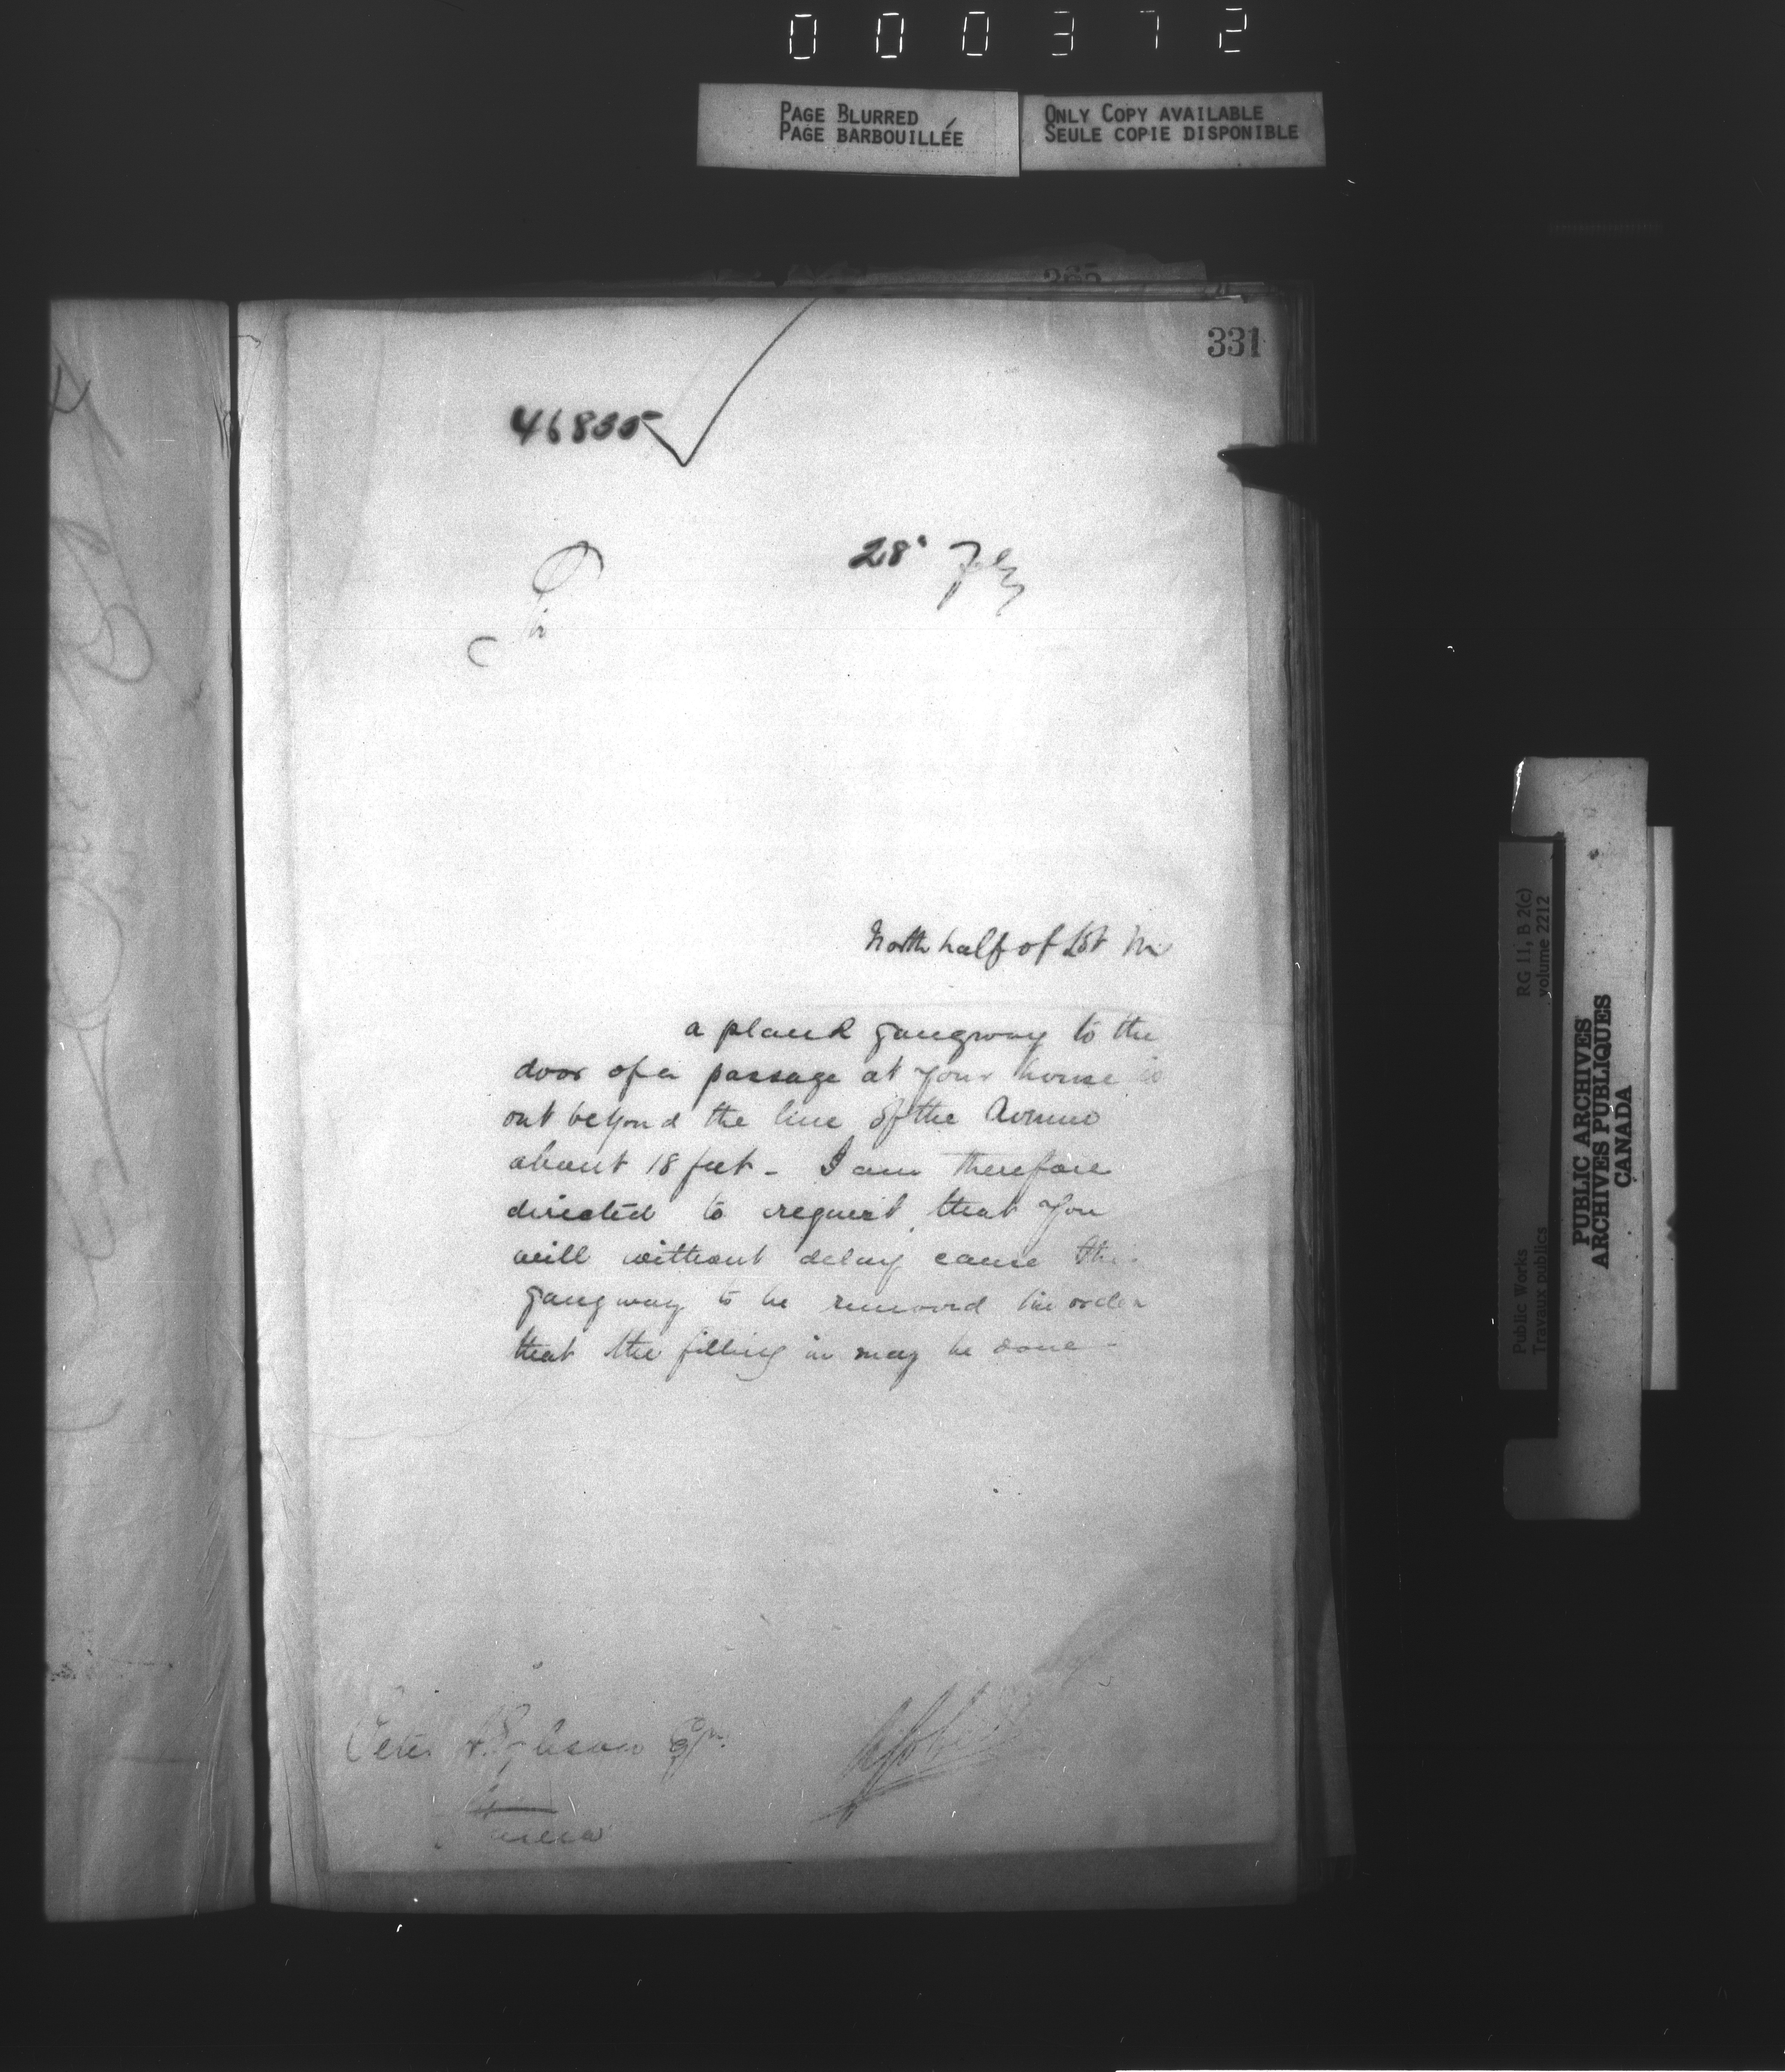 000372
PAGE BLURRED
PAGE BARBOUILLÉE
ONLY COPY AVAILABLE
SEULE COPIE DISPONIBLE
265
331
46835
28 Feby
Sir
North half of Lot
a plank gangway to the
door of a passage at your house is
out beyond the line of the Avenue
about 18 feet - I am therefore
directed to request that you
will without delay cause the
gangway to be removed in order
that the filling in may be done -
Peter Esqr.
Ottawa
RG 11, B 2(c)
volume 2212
Public Works
Travaux publics
PUBLIC ARCHIVES
ARCHIVES PUBLIQUES
CANADA